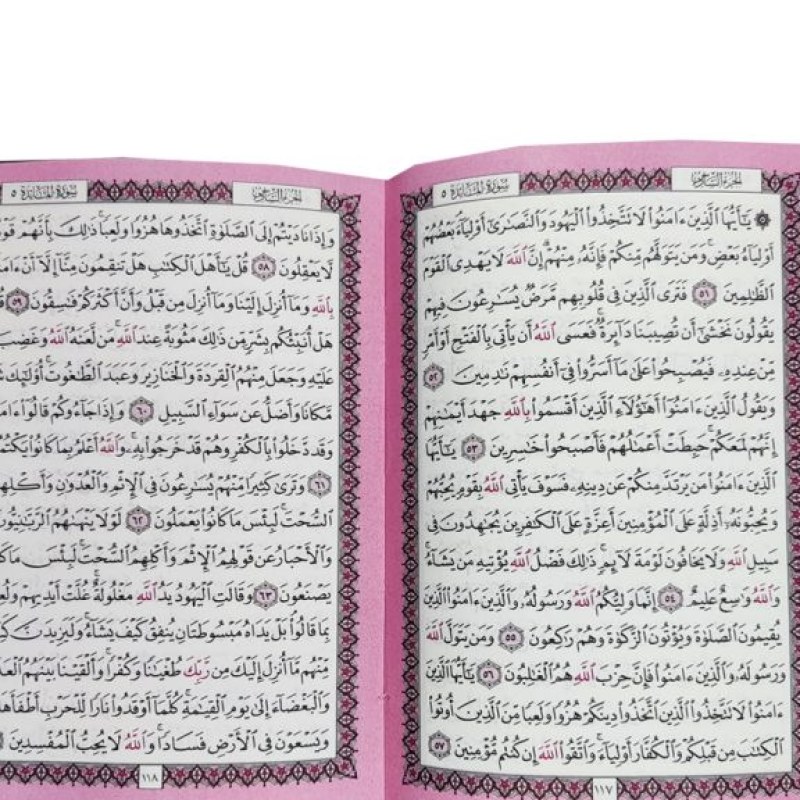 الجزء السادس سورة المائدة ٥
۞ يَـٰٓأَيُّهَا ٱلَّذِينَ ءَامَنُوا۟ لَا تَتَّخِذُوا۟ ٱلْيَهُودَ وَٱلنَّصَـٰرَىٰٓ أَوْلِيَآءَ ۘ بَعْضُهُمْ
أَوْلِيَآءُ بَعْضٍ ۚ وَمَن يَتَوَلَّهُم مِّنكُمْ فَإِنَّهُۥ مِنْهُمْ ۗ إِنَّ ٱللَّهَ لَا يَهْدِى ٱلْقَوْمَ
ٱلظَّـٰلِمِينَ ٥١ فَتَرَى ٱلَّذِينَ فِى قُلُوبِهِم مَّرَضٌ يُسَـٰرِعُونَ فِيهِمْ
يَقُولُونَ نَخْشَىٰٓ أَن تُصِيبَنَا دَآئِرَةٌ ۚ فَعَسَى ٱللَّهُ أَن يَأْتِىَ بِٱلْفَتْحِ أَوْ أَمْرٍ
مِّنْ عِندِهِۦ فَيُصْبِحُوا۟ عَلَىٰ مَآ أَسَرُّوا۟ فِىٓ أَنفُسِهِمْ نَـٰدِمِينَ ٥٢
وَيَقُولُ ٱلَّذِينَ ءَامَنُوٓا۟ أَهَـٰٓؤُلَآءِ ٱلَّذِينَ أَقْسَمُوا۟ بِٱللَّهِ جَهْدَ أَيْمَـٰنِهِمْ
إِنَّهُمْ لَمَعَكُمْ ۚ حَبِطَتْ أَعْمَـٰلُهُمْ فَأَصْبَحُوا۟ خَـٰسِرِينَ ٥٣ يَـٰٓأَيُّهَا
ٱلَّذِينَ ءَامَنُوا۟ مَن يَرْتَدَّ مِنكُمْ عَن دِينِهِۦ فَسَوْفَ يَأْتِى ٱللَّهُ بِقَوْمٍ يُحِبُّهُمْ
وَيُحِبُّونَهُۥٓ أَذِلَّةٍ عَلَى ٱلْمُؤْمِنِينَ أَعِزَّةٍ عَلَى ٱلْكَـٰفِرِينَ يُجَـٰهِدُونَ فِى
سَبِيلِ ٱللَّهِ وَلَا يَخَافُونَ لَوْمَةَ لَآئِمٍ ۚ ذَٰلِكَ فَضْلُ ٱللَّهِ يُؤْتِيهِ مَن يَشَآءُ ۚ
وَٱللَّهُ وَٰسِعٌ عَلِيمٌ ٥٤ إِنَّمَا وَلِيُّكُمُ ٱللَّهُ وَرَسُولُهُۥ وَٱلَّذِينَ ءَامَنُوا۟ ٱلَّذِينَ
يُقِيمُونَ ٱلصَّلَوٰةَ وَيُؤْتُونَ ٱلزَّكَوٰةَ وَهُمْ رَٰكِعُونَ ٥٥ وَمَن يَتَوَلَّ ٱللَّهَ
وَرَسُولَهُۥ وَٱلَّذِينَ ءَامَنُوا۟ فَإِنَّ حِزْبَ ٱللَّهِ هُمُ ٱلْغَـٰلِبُونَ ٥٦ يَـٰٓأَيُّهَا ٱلَّذِينَ
ءَامَنُوا۟ لَا تَتَّخِذُوا۟ ٱلَّذِينَ ٱتَّخَذُوا۟ دِينَكُمْ هُزُوًا وَلَعِبًا مِّنَ ٱلَّذِينَ أُوتُوا۟
ٱلْكِتَـٰبَ مِن قَبْلِكُمْ وَٱلْكُفَّارَ أَوْلِيَآءَ ۚ وَٱتَّقُوا۟ ٱللَّهَ إِن كُنتُم مُّؤْمِنِينَ ٥٧
١١٧
الجزء السادس سورة المائدة ٥
وَإِذَا نَادَيْتُمْ إِلَى ٱلصَّلَوٰةِ ٱتَّخَذُوهَا هُزُوًا وَلَعِبًا ۚ ذَٰلِكَ بِأَنَّهُمْ
لَّا يَعْقِلُونَ ٥٨ قُلْ يَـٰٓأَهْلَ ٱلْكِتَـٰبِ هَلْ تَنقِمُونَ مِنَّآ إِلَّآ أَنْ
بِٱللَّهِ وَمَآ أُنزِلَ إِلَيْنَا وَمَآ أُنزِلَ مِن قَبْلُ وَأَنَّ أَكْثَرَكُمْ فَـٰسِقُونَ ٥٩
هَلْ أُنَبِّئُكُم بِشَرٍّ مِّن ذَٰلِكَ مَثُوبَةً عِندَ ٱللَّهِ ۚ مَن لَّعَنَهُ ٱللَّهُ وَغَضِبَ
عَلَيْهِ وَجَعَلَ مِنْهُمُ ٱلْقِرَدَةَ وَٱلْخَنَازِيرَ وَعَبَدَ ٱلطَّـٰغُوتَ ۚ أُو۟لَـٰٓئِكَ
مَّكَانًا وَأَضَلُّ عَن سَوَآءِ ٱلسَّبِيلِ ٦٠ وَإِذَا جَآءُوكُمْ قَالُوٓا۟
وَقَد دَّخَلُوا۟ بِٱلْكُفْرِ وَهُمْ قَدْ خَرَجُوا۟ بِهِۦ ۚ وَٱللَّهُ أَعْلَمُ بِمَا كَانُوا۟
٦١ وَتَرَىٰ كَثِيرًا مِّنْهُمْ يُسَـٰرِعُونَ فِى ٱلْإِثْمِ وَٱلْعُدْوَٰنِ
ٱلسُّحْتَ ۚ لَبِئْسَ مَا كَانُوا۟ يَعْمَلُونَ ٦٢ لَوْلَا يَنْهَىٰهُمُ ٱلرَّبَّـٰنِيُّونَ
وَٱلْأَحْبَارُ عَن قَوْلِهِمُ ٱلْإِثْمَ وَأَكْلِهِمُ ٱلسُّحْتَ ۚ لَبِئْسَ مَا
يَصْنَعُونَ ٦٣ وَقَالَتِ ٱلْيَهُودُ يَدُ ٱللَّهِ مَغْلُولَةٌ ۚ غُلَّتْ أَيْدِيهِمْ
بِمَا قَالُوا۟ ۘ بَلْ يَدَاهُ مَبْسُوطَتَانِ يُنفِقُ كَيْفَ يَشَآءُ ۚ وَلَيَزِيدَنَّ
مِّنْهُم مَّآ أُنزِلَ إِلَيْكَ مِن رَّبِّكَ طُغْيَـٰنًا وَكُفْرًا ۚ وَأَلْقَيْنَا بَيْنَهُمُ
وَٱلْبَغْضَآءَ إِلَىٰ يَوْمِ ٱلْقِيَـٰمَةِ ۚ كُلَّمَآ أَوْقَدُوا۟ نَارًا لِّلْحَرْبِ
وَيَسْعَوْنَ فِى ٱلْأَرْضِ فَسَادًا ۚ وَٱللَّهُ لَا يُحِبُّ ٱلْمُفْسِدِينَ
١١٨